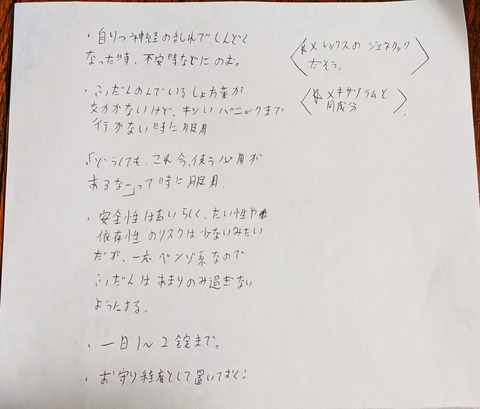 ・自りつ神経のみだれでしんどく
なった時、不安時などにのむ。
・ふだんのんでいるしょ方薬が
効かないけど、キツいパニックまで
行かない時に服用
「どうしても、これ今、使う必用が
あるなー」って時に服用
・安全性は高いらしく、たい性や
依存性のリスクは少ないみたい
だが、一応ベンゾ系なので
ふだんはあまりのみ過ぎない
ようにする。
・一日1〜2錠まで。
・お守り程度として置いておく!
メレックスのジェネリック
だそう。
メキサゾラムと
同成分